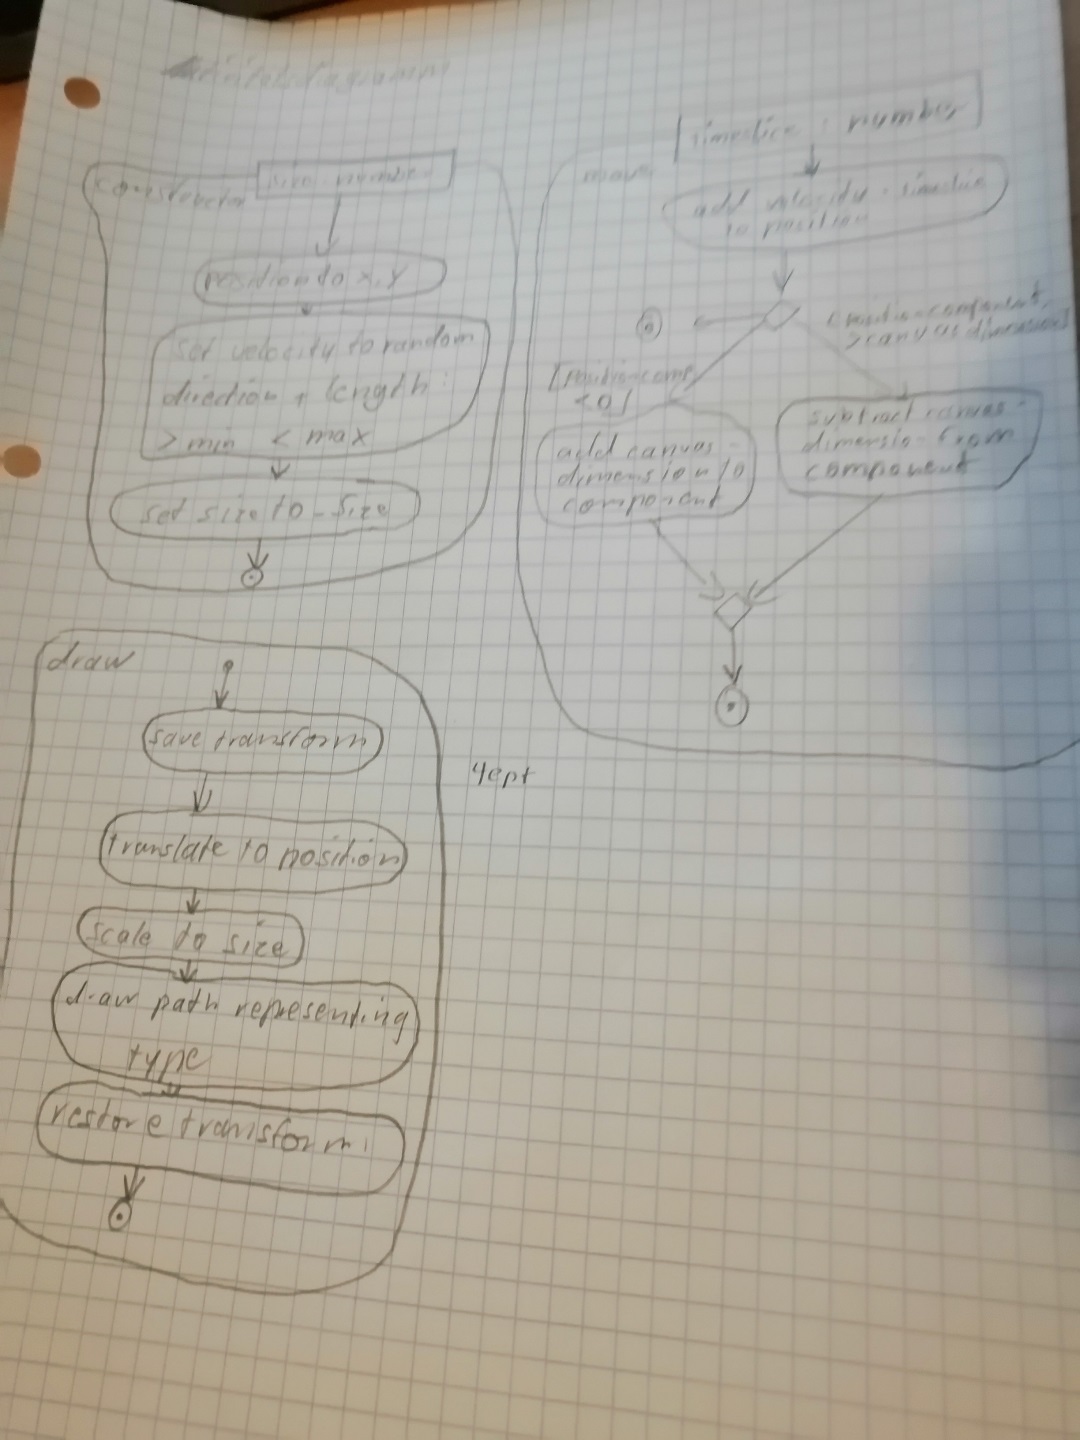 constructor
position to x, y
set velocity to random
direction + length:
> min < max
set size to _size
move
timeslice : number
add velocity · timeslice
to position
[position-component
> canvas dimension]
[position-comp
<0]
add canvas-
dimension to
component
subtract canvas-
dimension from
component
draw
save transform
translate to position
scale to size
draw path representing
type
restore transform
4ept